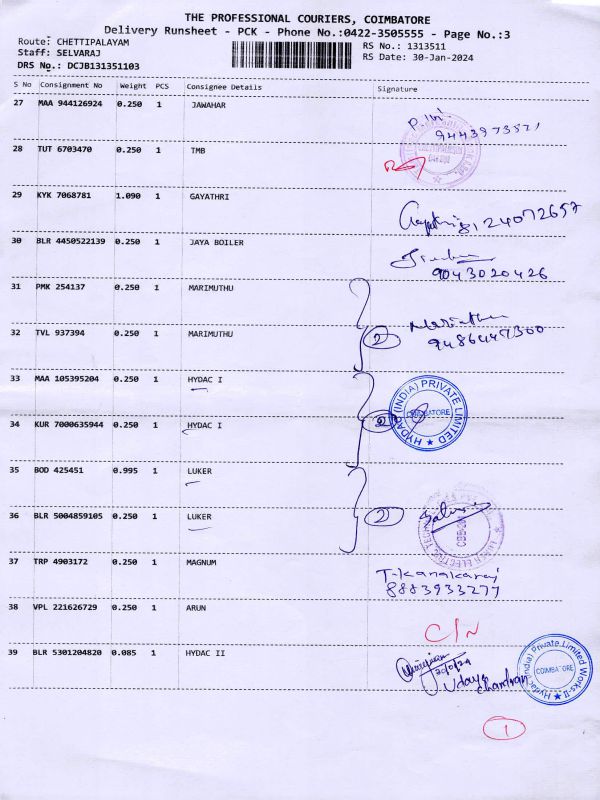 THE PROFESSIONAL COURIERS, COIMBATORE
Delivery Runsheet - PCK - Phone No.:0422-3505555 - Page No.:3
Route: CHETTIPALAYAM
RS No.: 1313511
Staff: SELVARAJ
RS Date: 30-Jan-2024
DRS No.: DCJB131351103
S No Consignment No Weight PCS Consignee Details Signature
27 MAA 944126924 0.250 1 JAWAHAR
28 TUT 6703470 0.250 1 TMB
29 KYK 7068781 1.090 1 GAYATHRI
Gayathri
30 BLR 4450522139 0.250 1 JAYA BOILER
9043020426
31 PMK 254137 0.250 1 MARIMUTHU
32 TVL 937394 0.250 1 MARIMUTHU
2
33 MAA 105395204 0.250 1 HYDAC I
HYDAC (INDIA) PRIVATE LIMITED
COIMBATORE
34 KUR 7000635944 0.250 1 HYDAC I
35 BOD 425451 0.995 1 LUKER
36 BLR 5004859105 0.250 1 LUKER
2
37 TRP 4903172 0.250 1 MAGNUM
T-Kanakaraj
8883933277
38 VPL 221626729 0.250 1 ARUN
C/N
39 BLR 5301204820 0.085 1 HYDAC II
Hydac (India) Private Limited Works-II
COIMBATORE
Udaya chandran
1